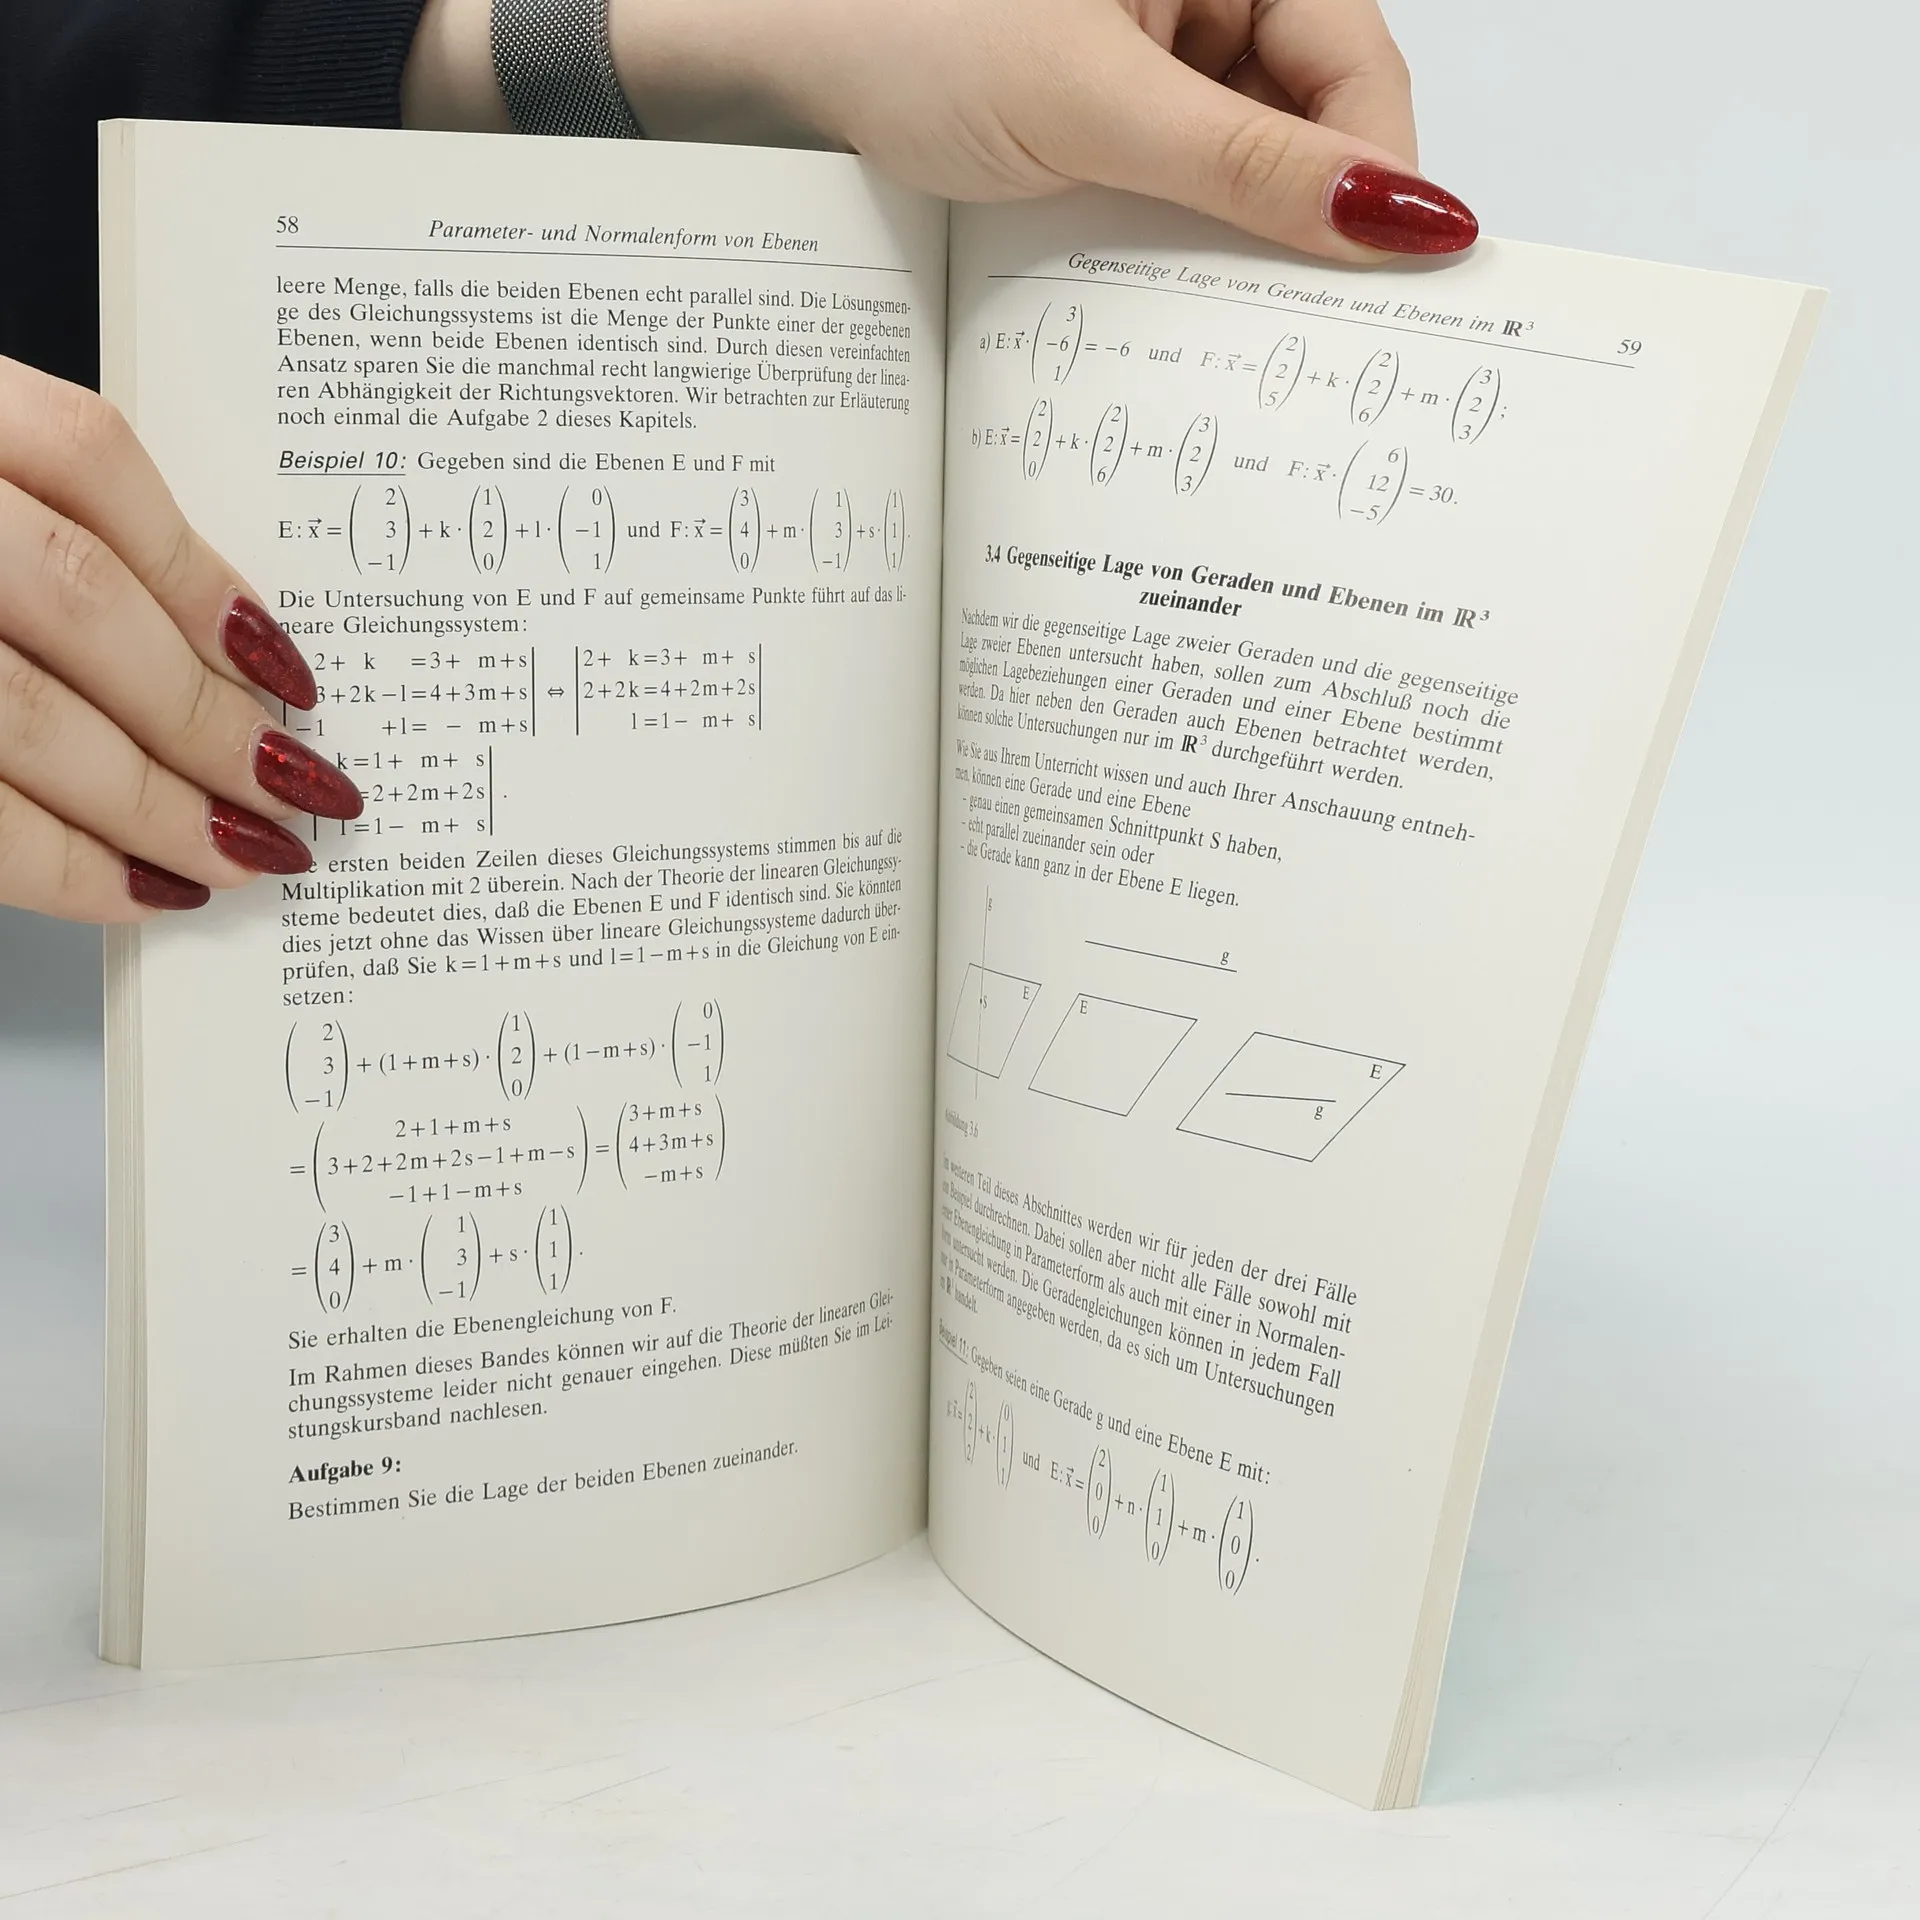 58 Parameter- und Normalenform von Ebenen
leere Menge, falls die beiden Ebenen echt parallel sind. Die Lösungsmen-
ge des Gleichungssystems ist die Menge der Punkte einer der gegebenen
Ebenen, wenn beide Ebenen identisch sind. Durch diesen vereinfachten
Ansatz sparen Sie die manchmal recht langwierige Überprüfung der linea-
ren Abhängigkeit der Richtungsvektoren. Wir betrachten zur Erläuterung
noch einmal die Aufgabe 2 dieses Kapitels.
Beispiel 10: Gegeben sind die Ebenen E und F mit
E: x⃗ = (2 3 −1) + k · (1 2 0) + l · (0 −1 1) und F: x⃗ = (3 4 0) + m · (1 3 −1) + s · (1 1 1).
Die Untersuchung von E und F auf gemeinsame Punkte führt auf das li-
neare Gleichungssystem:
2+ k =3+ m+s| |2+ k=3+ m+ s|
3+2k−l=4+3m+s| ⇔ |2+2k=4+2m+2s|
−1 +l= − m+s| | l=1− m+ s|
k=1+ m+ s|
=2+2m+2s| .
| l=1− m+ s|
ersten beiden Zeilen dieses Gleichungssystems stimmen bis auf die
Multiplikation mit 2 überein. Nach der Theorie der linearen Gleichungssy-
steme bedeutet dies, daß die Ebenen E und F identisch sind. Sie könnten
dies jetzt ohne das Wissen über lineare Gleichungssysteme dadurch über-
prüfen, daß Sie k=1+m+s und l=1−m+s in die Gleichung von E ein-
setzen:
(2 3 −1) + (1+m+s) · (1 2 0) + (1−m+s) · (0 −1 1)
= (2+1+m+s 3+2+2m+2s−1+m−s −1+1−m+s) = (3+m+s 4+3m+s −m+s)
= (3 4 0) + m · (1 3 −1) + s · (1 1 1).
Sie erhalten die Ebenengleichung von F.
Im Rahmen dieses Bandes können wir auf die Theorie der linearen Glei-
chungssysteme leider nicht genauer eingehen. Diese müßten Sie im Lei-
stungskursband nachlesen.
Aufgabe 9:
Bestimmen Sie die Lage der beiden Ebenen zueinander.
Gegenseitige Lage von Geraden und Ebenen im ℝ³ 59
a) E: x⃗ · (3 −6 1) = −6 und F: x⃗ = (2 2 5) + k · (2 2 6) + m · (3 2 3);
b) E: x⃗ = (2 2 0) + k · (2 2 6) + m · (3 2 3) und F: x⃗ · (6 12 −5) = 30.
3.4 Gegenseitige Lage von Geraden und Ebenen im ℝ³
zueinander
Nachdem wir die gegenseitige Lage zweier Geraden und die gegenseitige
Lage zweier Ebenen untersucht haben, sollen zum Abschluß noch die
möglichen Lagebeziehungen einer Geraden und einer Ebene bestimmt
werden. Da hier neben den Geraden auch Ebenen betrachtet werden,
können solche Untersuchungen nur im ℝ³ durchgeführt werden.
Wie Sie aus Ihrem Unterricht wissen und auch Ihrer Anschauung entneh-
men, können eine Gerade und eine Ebene
- genau einen gemeinsamen Schnittpunkt S haben,
- echt parallel zueinander sein oder
- die Gerade kann ganz in der Ebene E liegen.
g
g
E
S
E
E
g
Abbildung 3.6
Im weiteren Teil dieses Abschnittes werden wir für jeden der drei Fälle
ein Beispiel durchrechnen. Dabei sollen aber nicht alle Fälle sowohl mit
einer Ebenengleichung in Parameterform als auch mit einer in Normalen-
form untersucht werden. Die Geradengleichungen können in jedem Fall
nur in Parameterform angegeben werden, da es sich um Untersuchungen
im ℝ³ handelt.
Beispiel 11: Gegeben seien eine Gerade g und eine Ebene E mit:
g: x⃗ = (2 2 2) + k · (0 1 1) und E: x⃗ = (2 0 0) + n · (1 1 0) + m · (1 0 0).